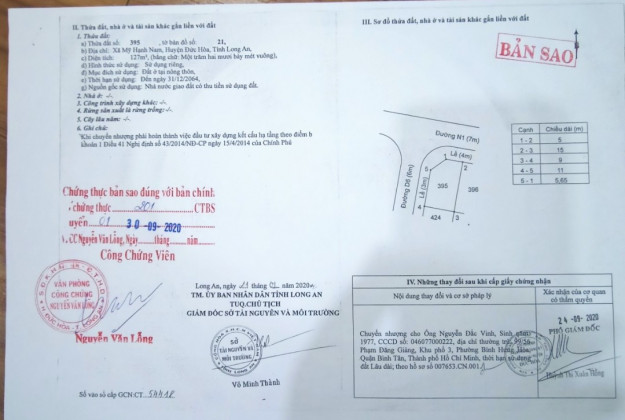 II. Thửa đất, nhà ở và tài sản khác gắn liền với đất
1. Thửa đất:
a) Thửa đất số: 395, tờ bản đồ số: 21,
b) Địa chỉ: Xã Mỹ Hạnh Nam, Huyện Đức Hòa, Tỉnh Long An.
c) Diện tích: 127m², (bằng chữ: Một trăm hai mươi bảy mét vuông),
d) Hình thức sử dụng: Sử dụng riêng,
đ) Mục đích sử dụng: Đất ở tại nông thôn,
e) Thời hạn sử dụng: Đến ngày 31/12/2064,
g) Nguồn gốc sử dụng: Nhà nước giao đất có thu tiền sử dụng đất.
2. Nhà ở: -/-
3. Công trình xây dựng khác: -/-
4. Rừng sản xuất là rừng trồng: -/-
5. Cây lâu năm: -/-
6. Ghi chú:
Khi chuyển nhượng phải hoàn thành việc đầu tư xây dựng kết cấu hạ tầng theo điểm b
khoản 1 Điều 41 Nghị định số 43/2014/NĐ-CP ngày 15/4/2014 của Chính Phủ
Chứng thực bản sao đúng với bản chính
chứng thực 201 CTBS
quyển 01 30-09-2020
CC Nguyễn Văn Lỗng, Ngày tháng năm
Công Chứng Viên
VĂN PHÒNG
CÔNG CHỨNG
NGUYỄN VĂN LỖNG
Nguyễn Văn Lỗng
Long An, ngày 21 tháng 01 năm 2020
TM. ỦY BAN NHÂN DÂN TỈNH LONG AN
TUQ.CHỦ TỊCH
GIÁM ĐỐC SỞ TÀI NGUYÊN VÀ MÔI TRƯỜNG
SỞ
TÀI NGUYÊN VÀ
MÔI TRƯỜNG
Võ Minh Thành
Số vào sổ cấp GCN:CT
III. Sơ đồ thửa đất, nhà ở và tài sản khác gắn liền với đất
BẢN SAO
Đường N1 (7m)
Lề (4m)
Đường D5 (6m)
Lề (3m)
5
1
2
395
396
4
424
3
Cạnh Chiều dài (m)
1 - 2 5
2 - 3 15
3 - 4 9
4 - 5 11
5 - 1 5,65
IV. Những thay đổi sau khi cấp giấy chứng nhận
Nội dung thay đổi và cơ sở pháp lý
Xác nhận của cơ quan
có thẩm quyền
Chuyển nhượng cho Ông Nguyễn Đắc Vinh, Sinh năm:
1977, CCCD số: 046077000222, địa chỉ thường trú: 99/26
Phạm Đăng Giảng, Khu phố 3, Phường Bình Hưng Hòa,
Quận Bình Tân, Thành phố Hồ Chí Minh, thời hạn sử dụng
đất Lâu dài; theo hồ sơ số 007653.CN.001
24-09-2020
PHÓ GIÁM ĐỐC
Huỳnh Thị Xuân Hồng